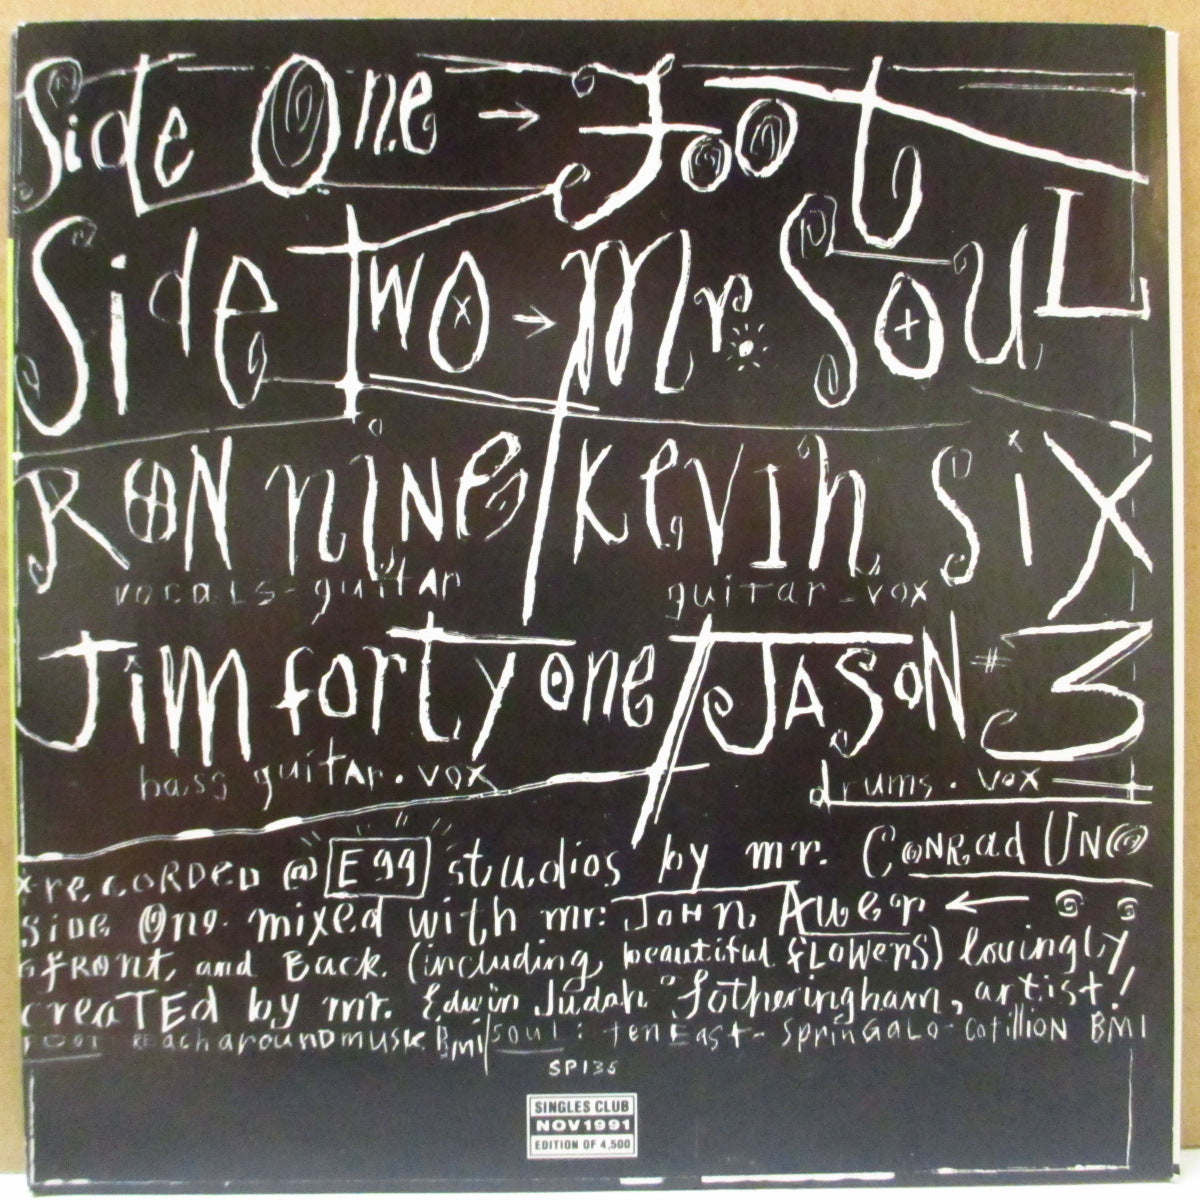 Side One → Foot
Side Two → Mr. Soul
RON NINE / Kevin Six
vocals - guitar guitar - vox
Jim forty one / JASON #3
bass guitar . vox drums . vox
recorded @ E99 studios by mr. Conrad Uno
Side One mixed with mr. John Auer ←
front, and Back (including beautiful flowers) lovingly
created by mr. Edwin Judah Fotheringham, artist!
FOOT Reacharoundmusic BMI / Soul : ten East - SprinGALo - Cotillion BMI
SP135
SINGLES CLUB
NOV 1991
EDITION OF 4,500